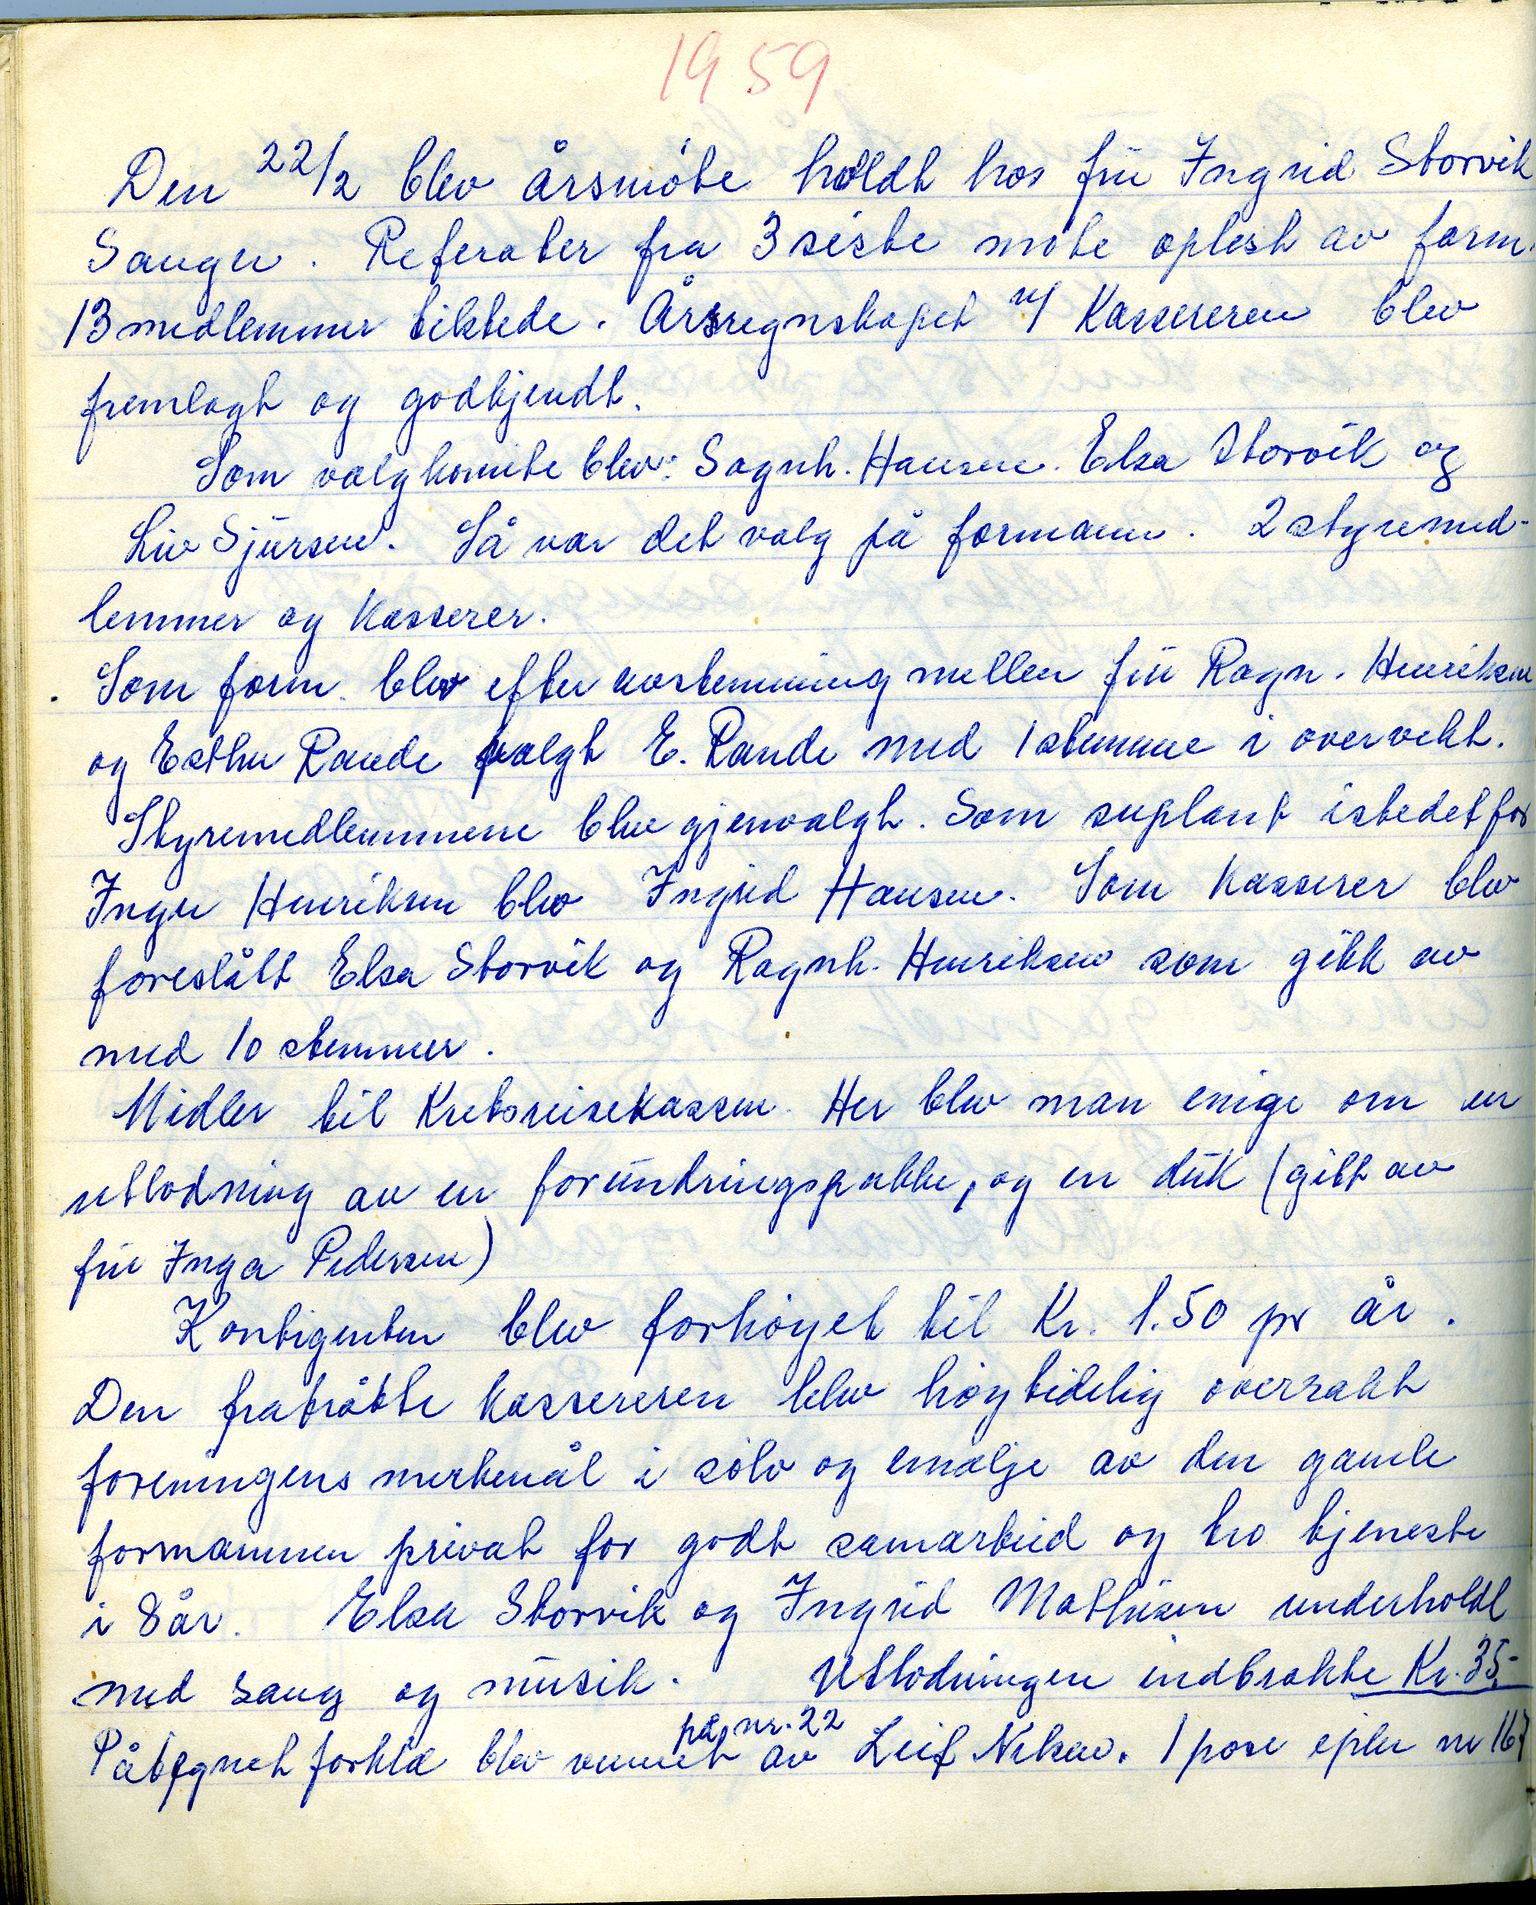 1959
Den 22/2 blev årsmöte holdt hos frü Ingrid Storvik
Sauger. Referater fra 3 siste möte oplest av form.
13 medlemmer tilstede. Årsregnskapet v/ Kassereren blev
fremlagt og godkjendt.
Som valgkomite blev: Ragnh. Hansen. Elsa Storvik og
Liv Sjürsen. Så var det valg på formann. 2 styremed-
lemmer og Kasserer.
Som form. blev efter avstemming mellem frü Ragn. Henriksen
og Esther Rande valgt E. Rande med 1 stemme i overvekt.
Styremedlemmene blev gjenvalgt. Som suplant istedetfor
Inger Henriksen blev Ingrid Hansen. Som Kasserer blev
foreslått Elsa Storvik og Ragnh. Henriksen som gikk av
med 10 stemmer.
Midler til Kretsreisekassen. Her blev man enige om en
utlodning av en foründringspakke, og en dük (gitt av
frü Inga Pedersen)
Kontigenten blev forhöyet til Kr. 1.50 pr år.
Den fratrådte kassereren blev höytidelig overrakt
foreningens merkenål i sölv og emalje av den gamle
formannen privat for godt samarbeid og tro tjeneste
i 8 år. Elsa Storvik og Ingrid Mathisen underholdt
med sang og müsik. Utlodningen indbrakte Kr. 35,-
på nr. 22
Påbegynet forklæ blev vunnet av Leif Nilsen. 1 pose epler nr 167